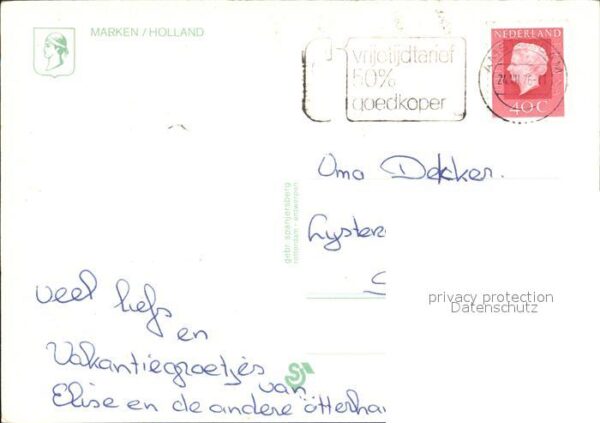 MARKEN / HOLLAND
vrijetijdtarief
50%
goedkoper
NEDERLAND
40C
Oma Dekker.
gebr. spanjersberg
rotterdam - antwerpen
privacy protection
Datenschutz
veel liefs
en
Vakantiegroetjes
van
Elise en de andere